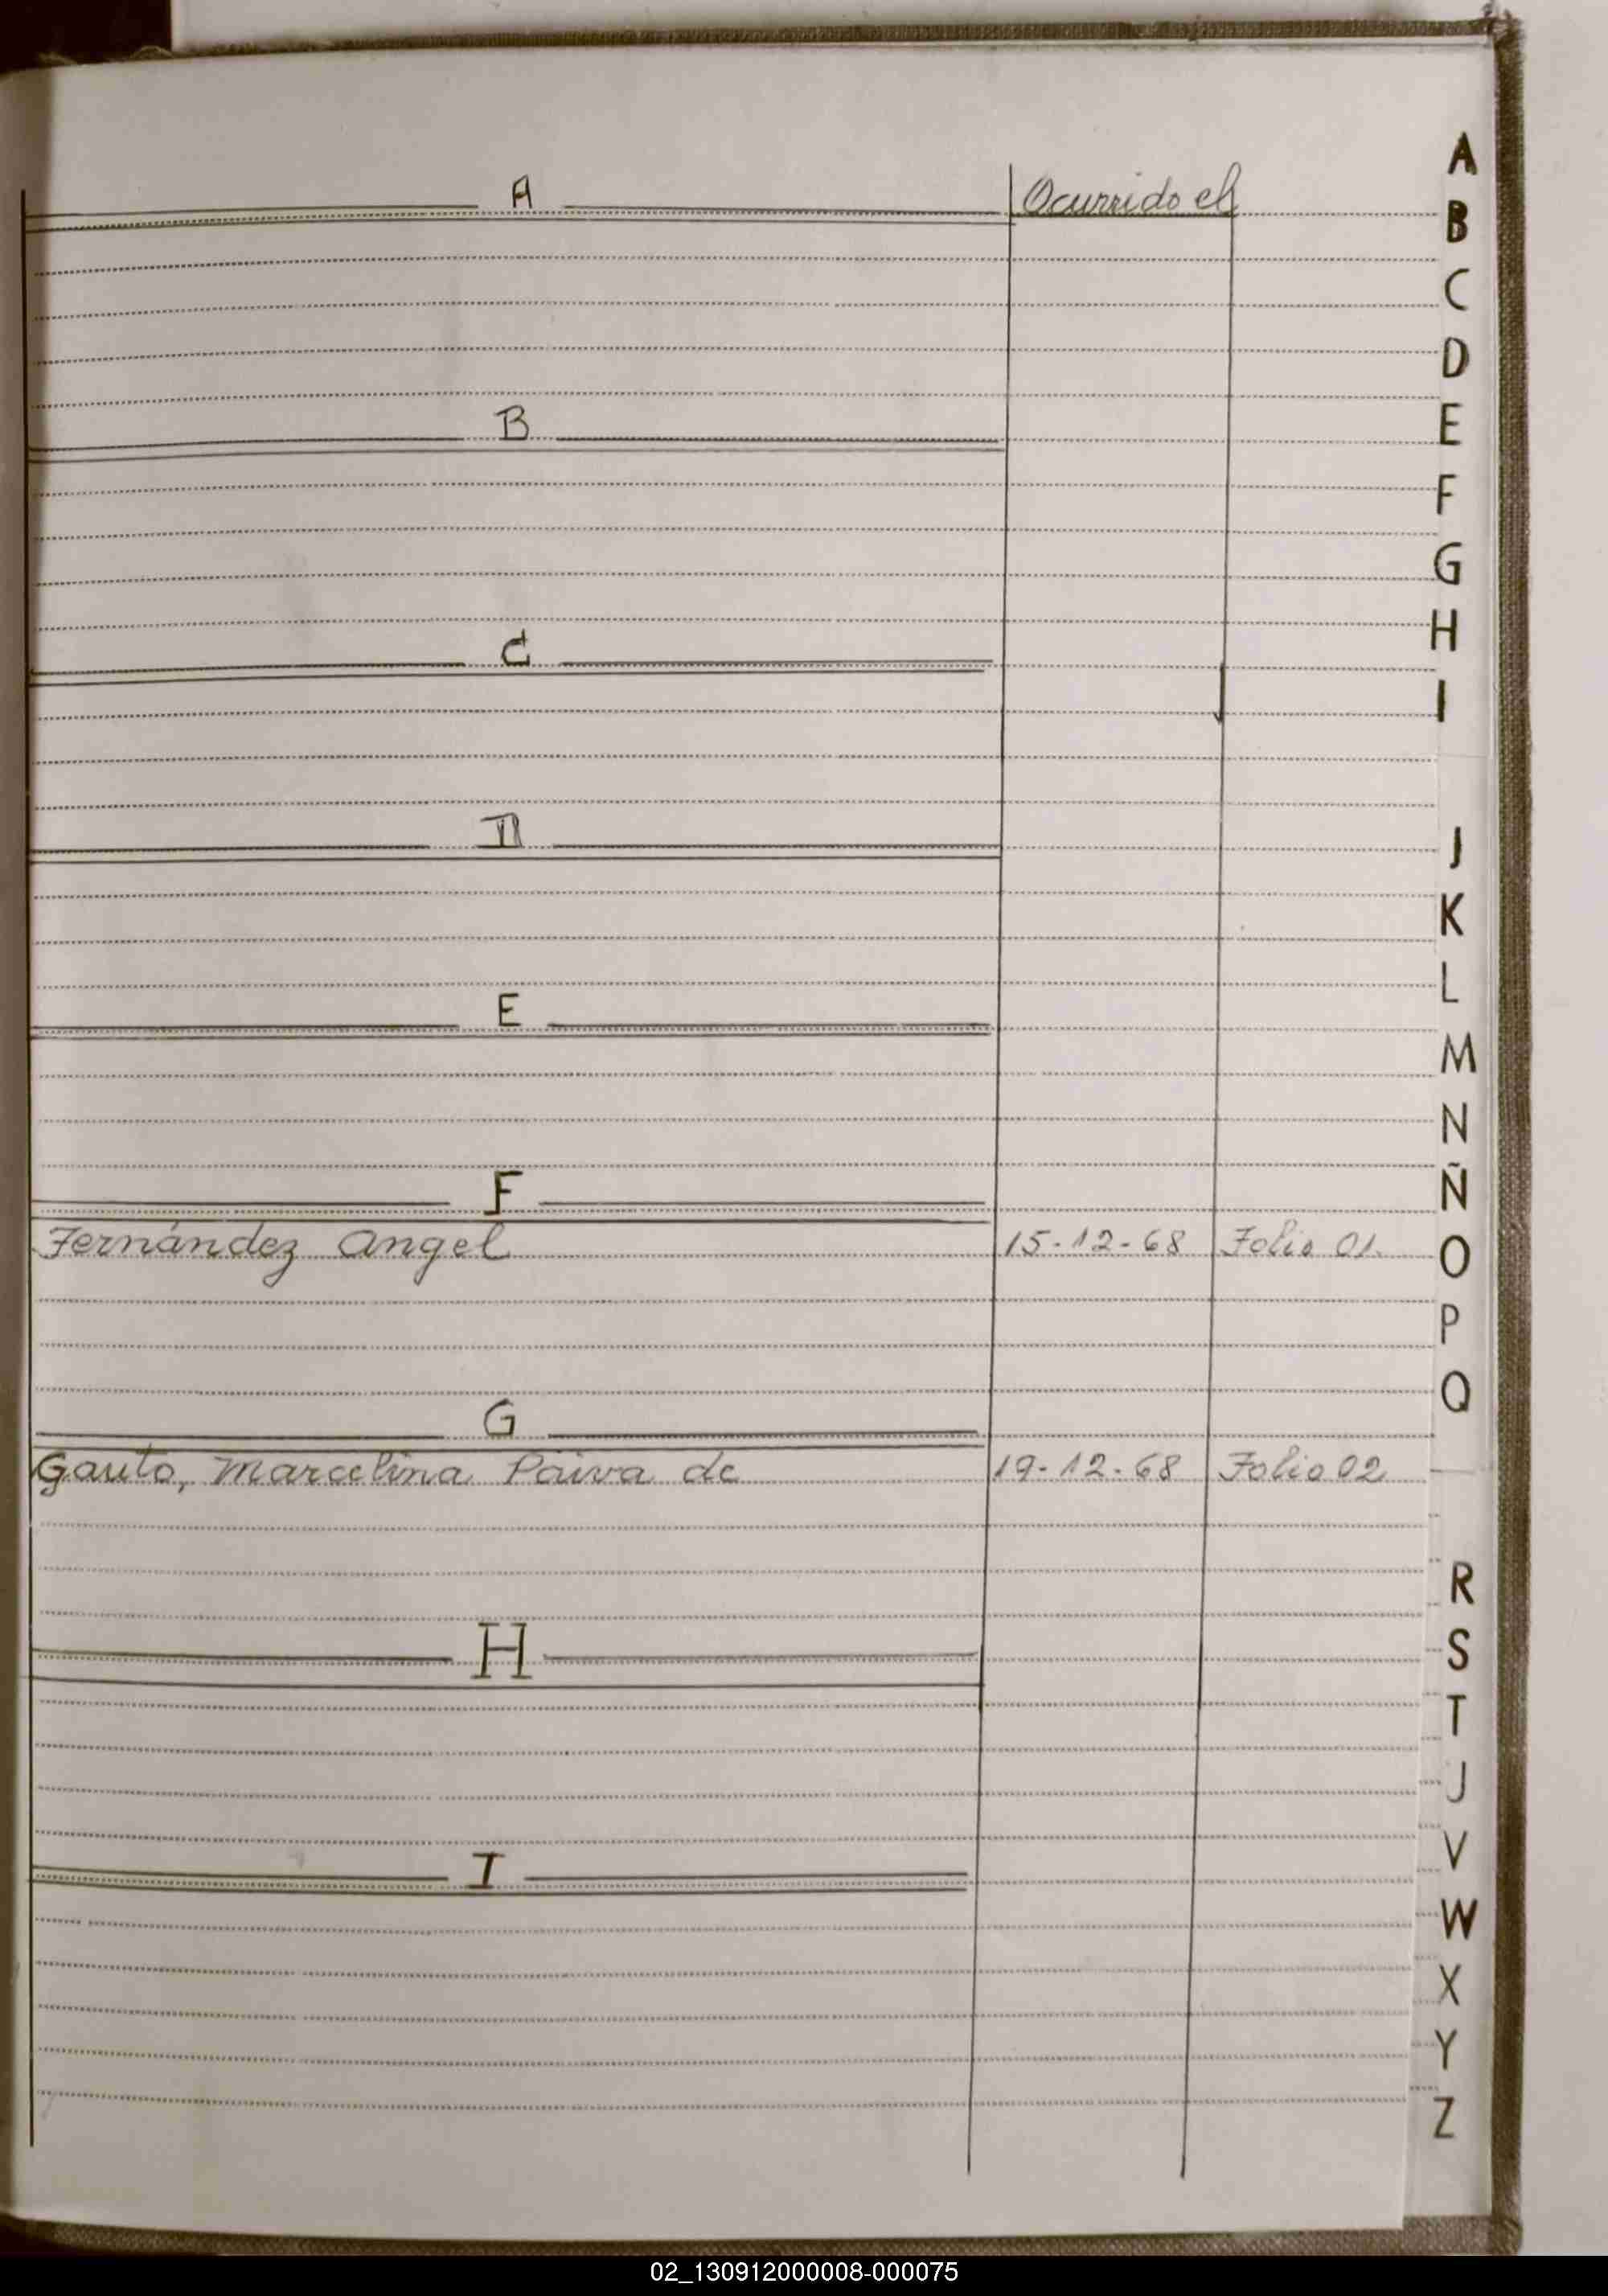 A Ocurrido el
B
C
D
E
F
Fernández Angel 15-12-68 Folio 01.
G
Gauto, Marcelina Paiva de 19-12-68 Folio 02
H
I
A
B
C
D
E
F
G
H
I
J
K
L
M
N
Ñ
O
P
Q
R
S
T
J
V
W
X
Y
Z
02_130912000008-000075